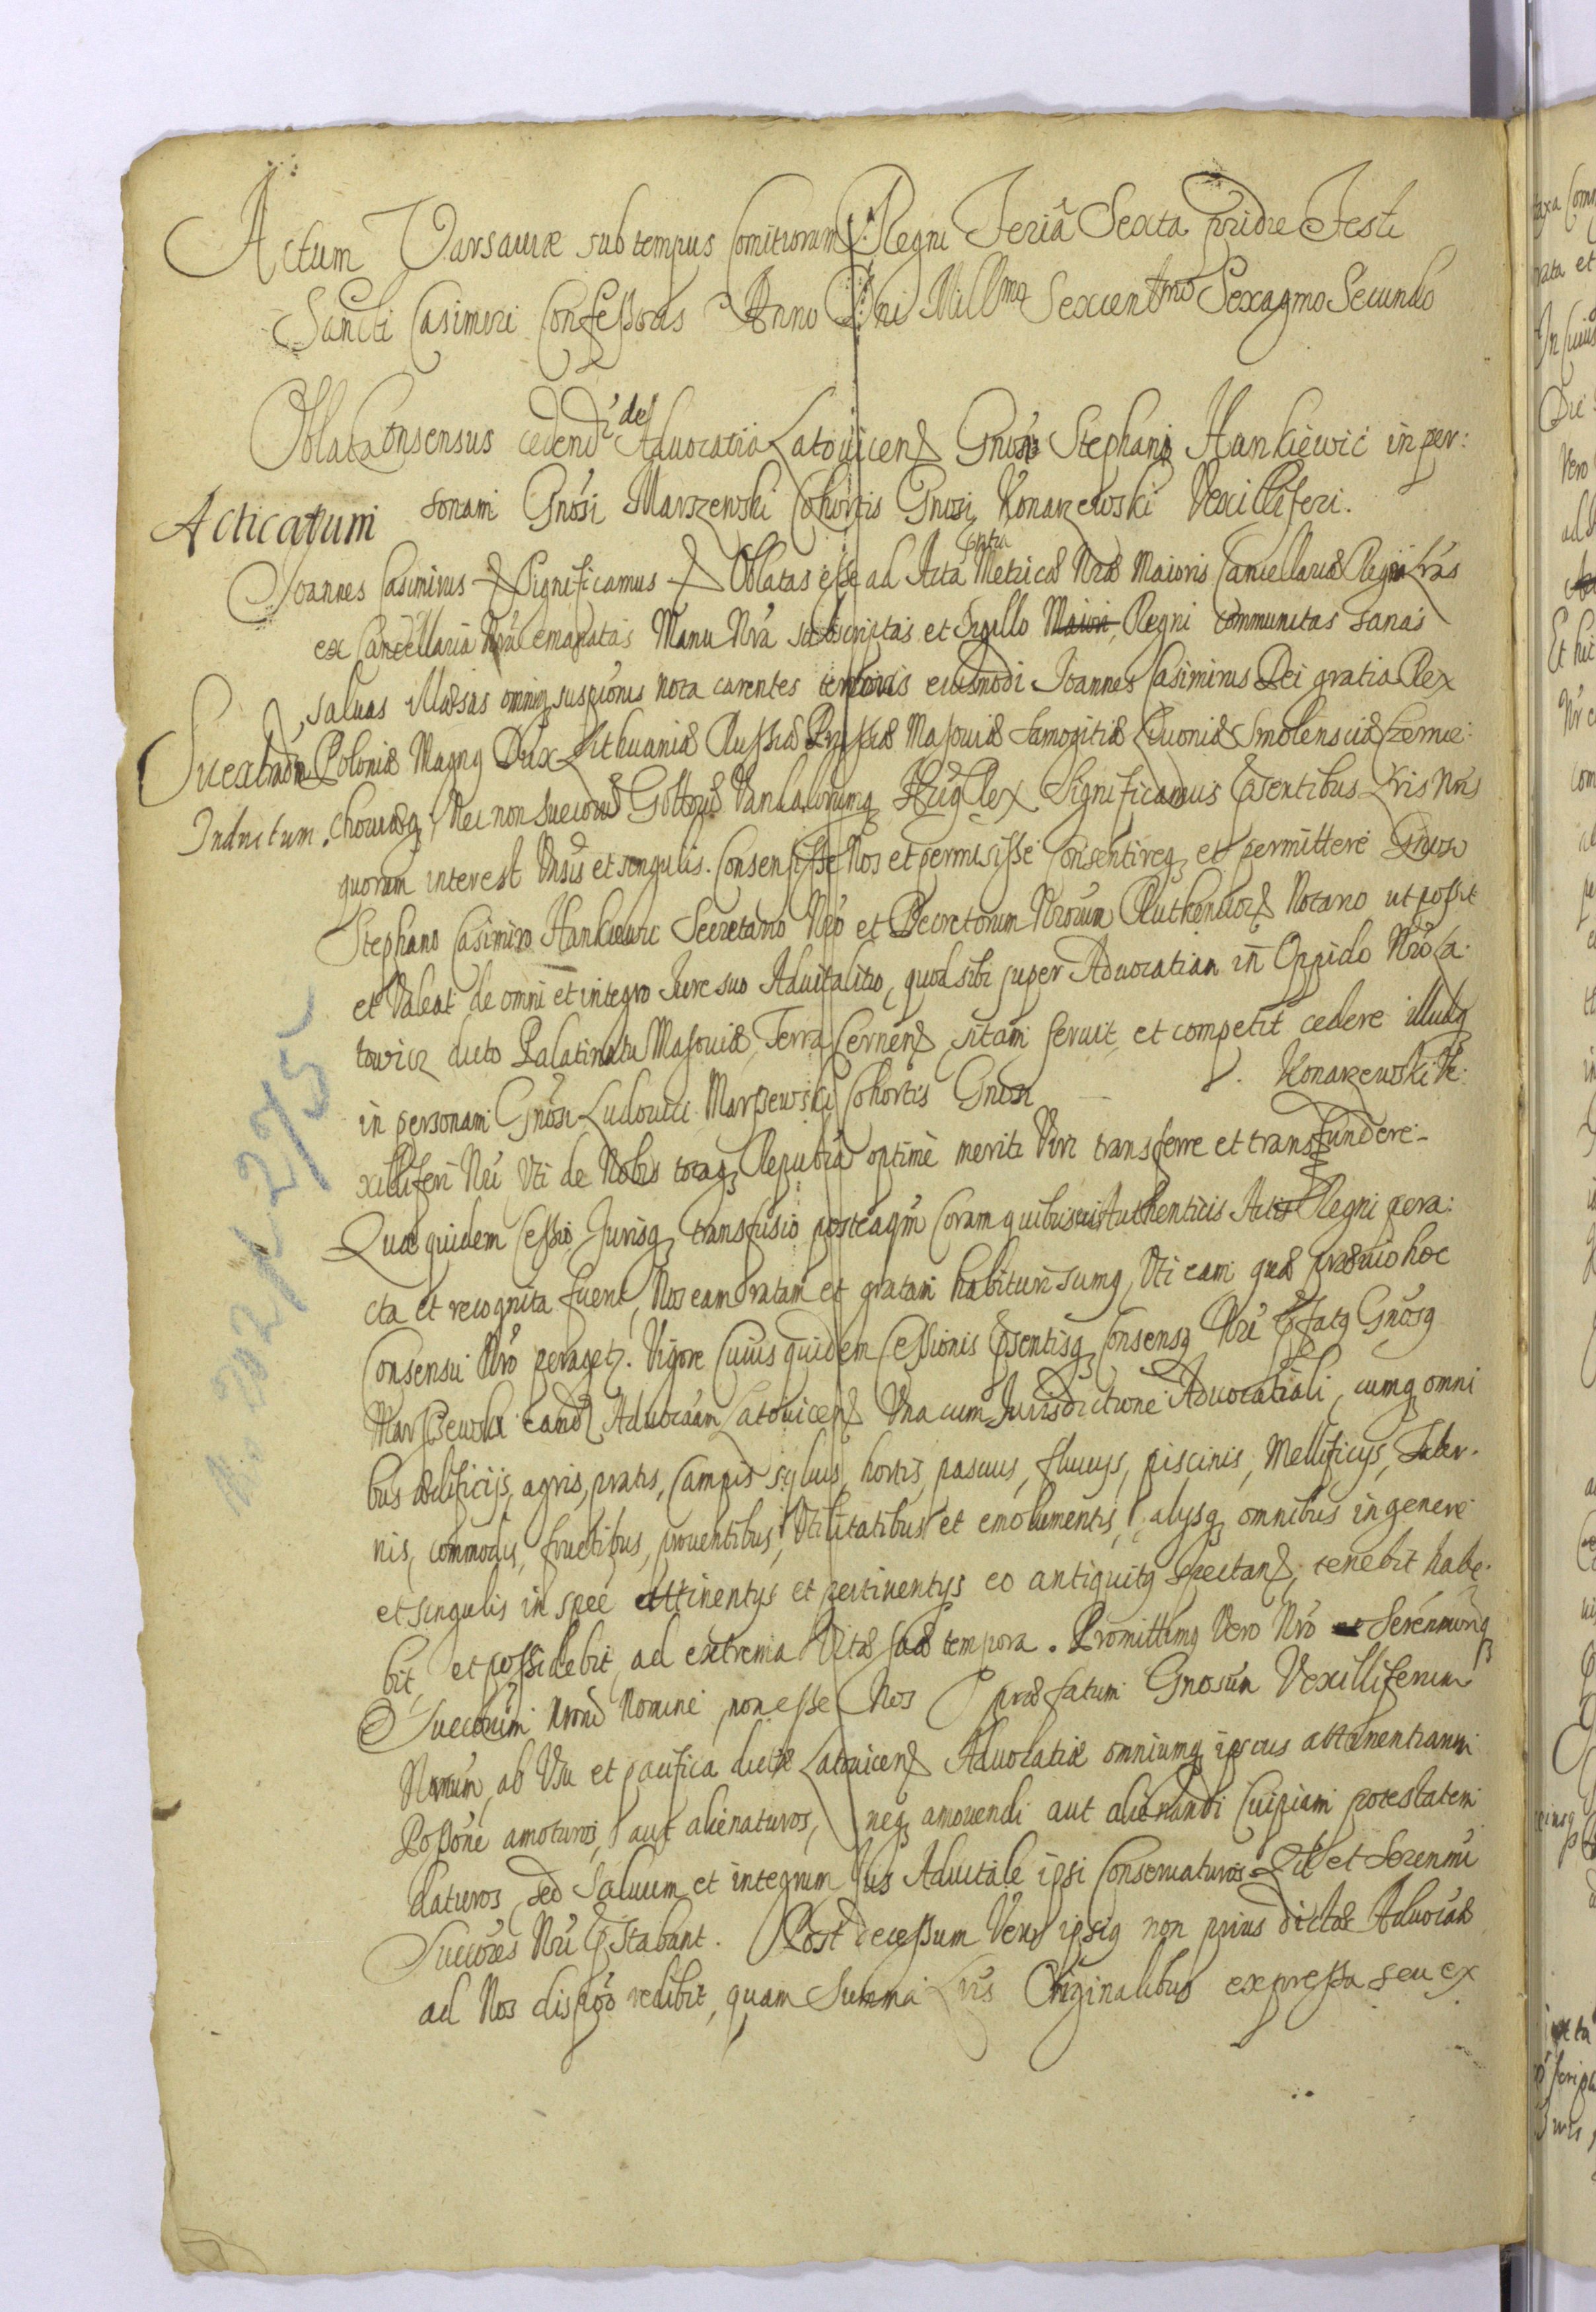 Actum Varsaviæ sub tempus Comitiorum Regni Feriâ Sexta pridie Festi
Sancti Casimiri Confessoris Anno Dni Mill̃mo Sexcent̃mo Sexagmo Secundo
Oblata Consensus cedendi de Advocatia Latovicen Gnosi Stephani Hankiewic in per:
sonam Gnosi Marszewski Cohortis Gnosi Konarzewski Vexilliferi.
Acticatum
Joannes Casimirus & Significamus & Oblatas esse ad Acta Metricæ Nræ Maioris Cancellariæ Regni Lras
ex Cancellaria Nra emanatas Manu Nra subscriptas et Sigillo Regni communitas sanas
salvas illæsas omniq suspionis nota carentes tenoris eiusmodi Joannes Casimirus Dei gratia Rex
Poloniæ Magnq Dux Lithuaniæ Russiæ Prussiæ Masoviæ Samogitiæ Livoniæ Smolensciæ Czernie:
Inductum. choviæq, Nec non Suecorum Gottorum Vandalorumq Hærq Rex Significamus psentibus Lris Nris
quorum interest Vnsis et singulis. Consensisse Nos et permisisse consentireq et permittere Gnoso
Stephano Casimiro Hankiewic Secretario Nro et Decretorum Nrorum Ruthenicor Notario ut possit
et Valeat de omni et integro Jure suo Advitalitio, quod sibi super Advocatiam in Oppido Nro La:
towicz dicto Palatinatu Masoviæ Terra Cernen sitam servit et competit cedere illudq
in personam Gnosi Ludovici Marszewski Cohortis Gnosi Konarzewski Ve:
xilliferi Nri Vti de Nobis totaq Repubca optimè meriti Viri transferre et transfundere.
Quæ quidem Cessio Jurisq transfusio posteaqm Coram quibusvis Authenticis Actis Regni pera:
cta et recognita fuerit, Nos eam ratam et gratam habituri sumq, Vti eam quæ prævio hoc
Consensu Nro peraget. Vigore Cuius quidem Cessionis psentisq Consensq Nri pfatq Gnosq
Marszewski eand Advocaam Latovicen Vna cum Jurisdictione Advocatiali, cumq omni
bus ædificijs, agris, pratis, Campis sylvis, hortis, pascuis, fluvys, piscinis, Mellificys, Taber-
nis, commodis, fructibus, proventibus, Vtilitatibus et emolumentis, alysq omnibus in genere
et singulis in spee attinentys et pertinentys eo antiquitq Spectan, tenebit habe:
bit, et possidebit, ad extrema Vitæ suæ tempora. Promittimq Vero Nro Serenmorq
Succorum Nrorum Nomine, non esse Nos præfatum Gnosum Vexilliferum
Nrum, ab Vsu et pacifica dictæ Latovicen Advocatiæ omniumq ipsius attinentiarum
Possone amoturos, aut alienaturos, neq amovendi aut alienandi Cuipiam potestatem
daturos, sed Salvum et integrum Jus Advitale ipsi Conservaturos Qd et Serenmi
Succores Nri pstabunt. Post decessum Vero ipsiq non prius dictæ Advocaæ
ad Nos dispo redibit, quam Summa Lris Originalibus expressa seu ex